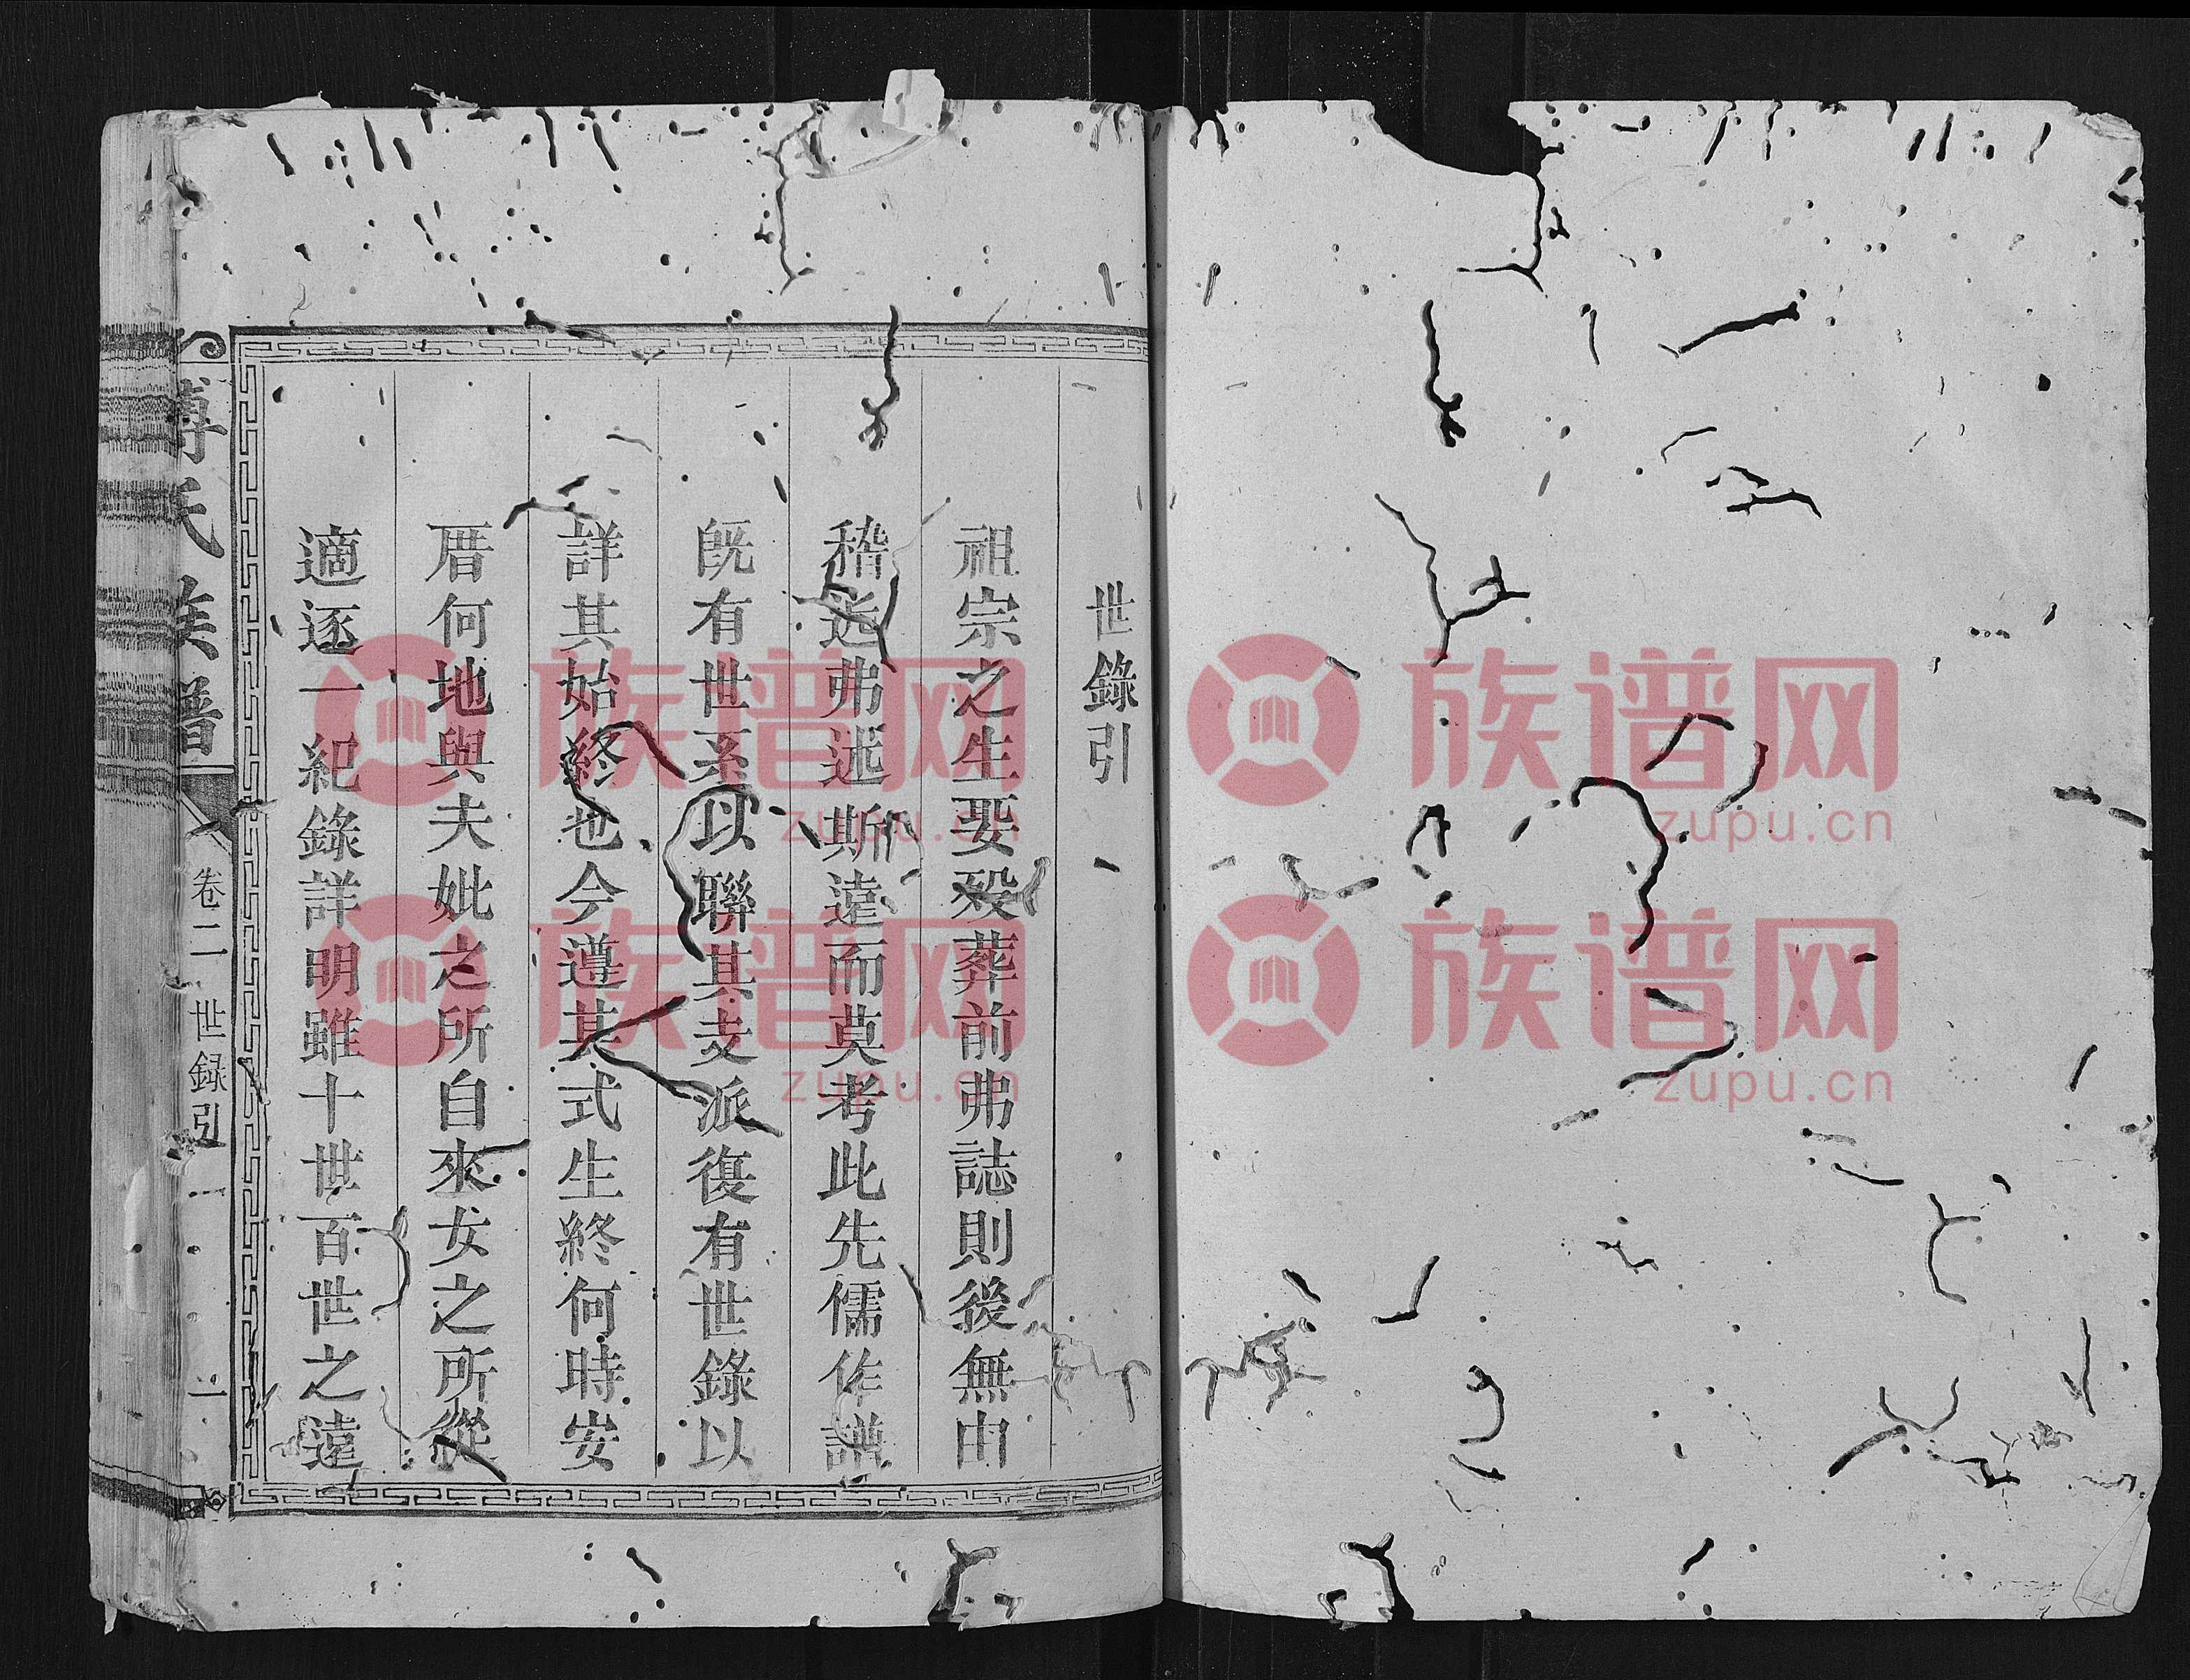 世錄引
祖宗之生娶殁葬前弗誌則後無由
稽迄弗述斯遠而莫考此先儒作譜
既有世系以聯其支派復有世錄以
詳其始終也今遵其式生終何時安
厝何地與夫妣之所自來女之所從
適逐一紀錄詳明雖十世百世之遠
氏族譜
卷二
世録引
一
族谱网
zupu.cn
族谱网
zupu.cn
族谱网
zupu.cn
族谱网
zupu.cn